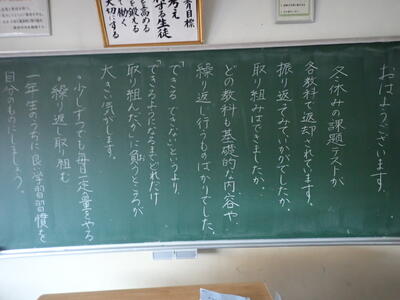 育目標
考え
する生徒
を高める
を鍛える
て働
大切にする
おはようございます。
冬休みの課題テストが
各教科で返却されています。
振り返ってみていかがでしたか。
取り組みはできましたか。
どの教科も基礎的な内容や
繰り返し行うものばかりでした。
「できる・できない」というより、
「できるようになるまでどれだけ
取り組んだか」に願うところが
大きい気がします。
・少しずつでも毎日一定量をやる
・繰り返し取り組む
一年生のうちに良い学習習慣を
自分のものにしましょう。